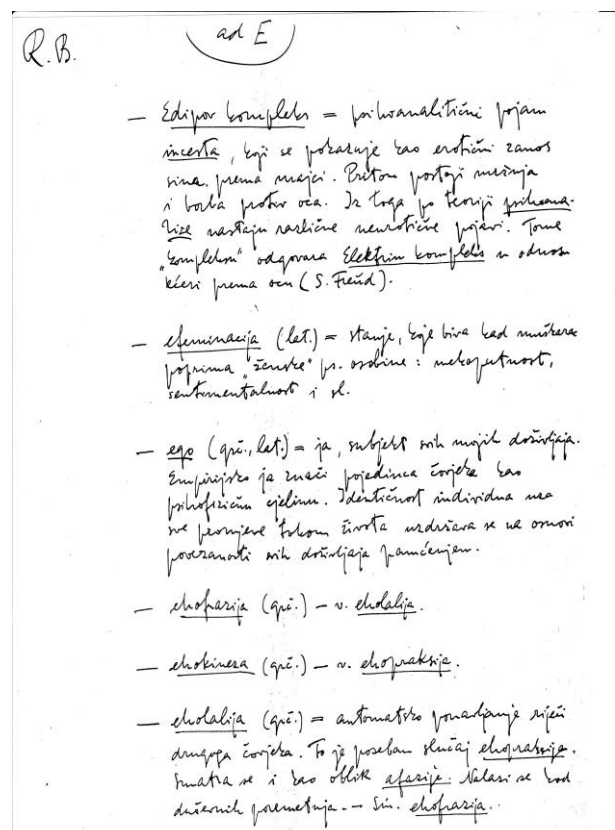 R.B.
ad E
— Edipov kompleks = psihoanalitični pojam
incesta, koji se pokazuje kao erotični zanos
sina prema majci. Pritom postoji mržnja
i borba protiv oca. Iz toga po teoriji psihoana-
lize nastaju različne neurotične pojavi. Tome
"kompleksu" odgovara Elektrin kompleks u odnosu
kćeri prema ocu (S. Freud).
— efeminacija (lat.) = stanje, koje biva kad muškarac
poprima "ženske" ps. osobine: nekoputnost,
sentimentalnost i sl.
— ego (grč., lat.) = ja, subjekt svih mojih doživljaja.
Empirijsko ja znači pojedinca čovjeka kao
psihofizičnu cjelinu. Identičnost individua uza
sve promjene tokom života uzdržava se na osnovi
povezanosti svih doživljaja pamćenjem.
— ehofrazija (grč.) – v. eholalija.
— ehokineza (grč.) – v. ehopraksija.
— eholalija (grč.) = automatsko ponavljanje riječi
drugoga čovjeka. To je poseban slučaj ehopraksije.
Smatra se i kao oblik afazije. Nalazi se kod
duševnih poremetnja. – Sin. ehofrazija.